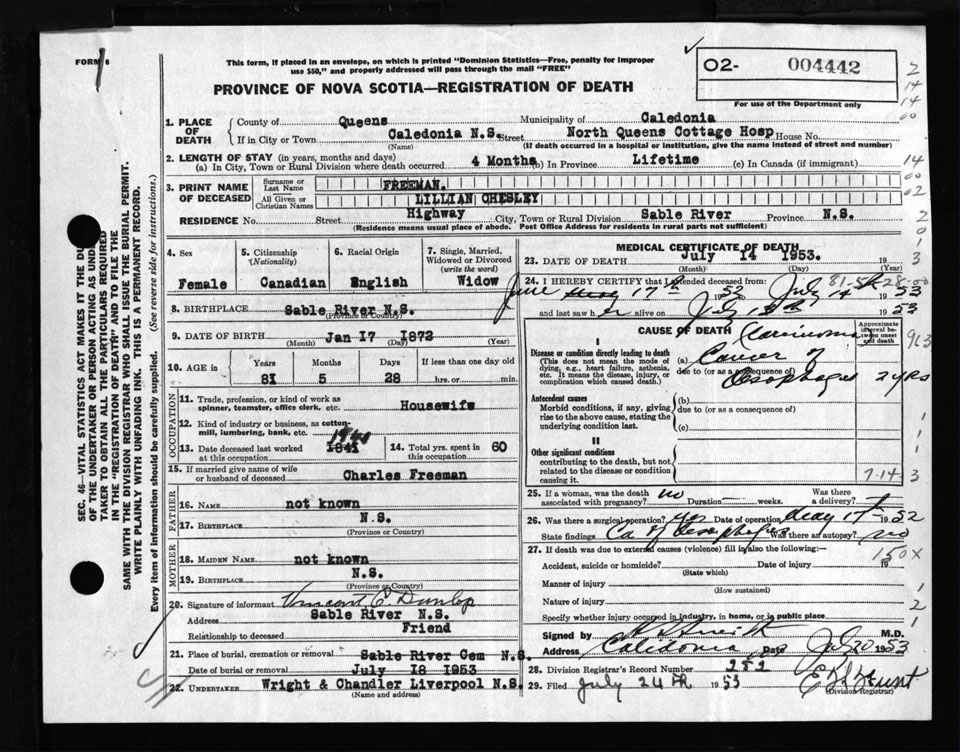 FORM 6
This form, if placed in an envelope, on which is printed "Dominion Statistics—Free, penalty for improper
use $50," and properly addressed will pass through the mail "FREE"
PROVINCE OF NOVA SCOTIA—REGISTRATION OF DEATH
02- 004442
For use of the Department only
SEC. 46—VITAL STATISTICS ACT MAKES IT THE DU
OF THE UNDERTAKER OR PERSON ACTING AS UND
TAKER TO OBTAIN ALL THE PARTICULARS REQUIRED
IN THE "REGISTRATION OF DEATH" AND TO FILE THE
SAME WITH THE DIVISION REGISTRAR WHO SHALL ISSUE THE BURIAL PERMIT.
WRITE PLAINLY WITH UNFADING INK. THIS IS A PERMANENT RECORD.
Every item of information should be carefully supplied. (See reverse side for instructions.)
1. PLACE OF DEATH
County of Queens Municipality of Caledonia
If in City or Town Caledonia N.S. Street North Queens Cottage Hosp House No.
(Name) (If death occurred in a hospital or institution, give the name instead of street and number)
2. LENGTH OF STAY (in years, months and days)
(a) In City, Town or Rural Division where death occurred 4 Months (b) In Province Lifetime (c) In Canada (if immigrant)
3. PRINT NAME OF DECEASED
Surname or Last Name FREEMAN.
All Given or Christian Names LILLIAN CHESLEY
RESIDENCE No. Street Highway City, Town or Rural Division Sable River Province N.S.
(Residence means usual place of abode. Post Office Address for residents in rural parts not sufficient)
4. Sex Female
5. Citizenship (Nationality) Canadian
6. Racial Origin English
7. Single, Married, Widowed or Divorced (write the word) Widow
8. BIRTHPLACE Sable River N.S.
(Province or Country)
9. DATE OF BIRTH Jan 17 1872
(Month) (Day) (Year)
10. AGE in Years Months Days If less than one day old
81 5 28 hrs. or min.
OCCUPATION
11. Trade, profession, or kind of work as
spinner, teamster, office clerk, etc. Housewife
12. Kind of industry or business, as cotton-
mill, lumbering, bank, etc.
13. Date deceased last worked at this occupation 1941
14. Total yrs. spent in this occupation 60
15. If married give name of wife or husband of deceased Charles Freeman
FATHER
16. NAME not known
17. BIRTHPLACE N.S.
(Province or Country)
MOTHER
18. MAIDEN NAME not known
19. BIRTHPLACE N.S.
(Province or Country)
20. Signature of informant Vincent E. Dunlop
Address Sable River N.S.
Relationship to deceased Friend
21. Place of burial, cremation or removal Sable River Cem N.S.
Date of burial or removal July 18 1953
22. UNDERTAKER Wright & Chandler Liverpool N.S.
MEDICAL CERTIFICATE OF DEATH
23. DATE OF DEATH July 14 1953. 19
(Month) (Day) (Year)
24. I HEREBY CERTIFY that I attended deceased from
June 17th 1952 to July 14th 1953
and last saw her alive on July 13th 1953
81-5-28-00
CAUSE OF DEATH
Approximate interval between onset and death
I
Disease or condition directly leading to death
(This does not mean the mode of
dying, e.g., heart failure, asthenia,
etc. It means the disease, injury, or
complication which caused death.)
(a) Carcinoma
Cancer of
due to (or as a consequence of)
Oesophagus 2 yrs
Antecedent causes
Morbid conditions, if any, giving
rise to the above cause, stating the
underlying condition last.
(b)
due to (or as a consequence of)
(c)
II
Other significant conditions
contributing to the death, but not
related to the disease or condition
causing it.
7-14 3
25. If a woman, was the death associated with pregnancy? no Duration weeks. Was there a delivery?
26. Was there a surgical operation? yes Date of operation May 17 1952
State findings Ca of oesophagus Was there an autopsy? no
27. If death was due to external causes (violence) fill in also the following:—
150X
Accident, suicide or homicide? Date of injury 19
(State which)
Manner of injury
(How sustained)
Nature of injury
Specify whether injury occurred in industry, in home, or in public place
Signed by M.D.
Address Caledonia Date July 20 1953
28. Division Registrar's Record Number 252
29. Filed July 24th 1953
(Division Registrar)